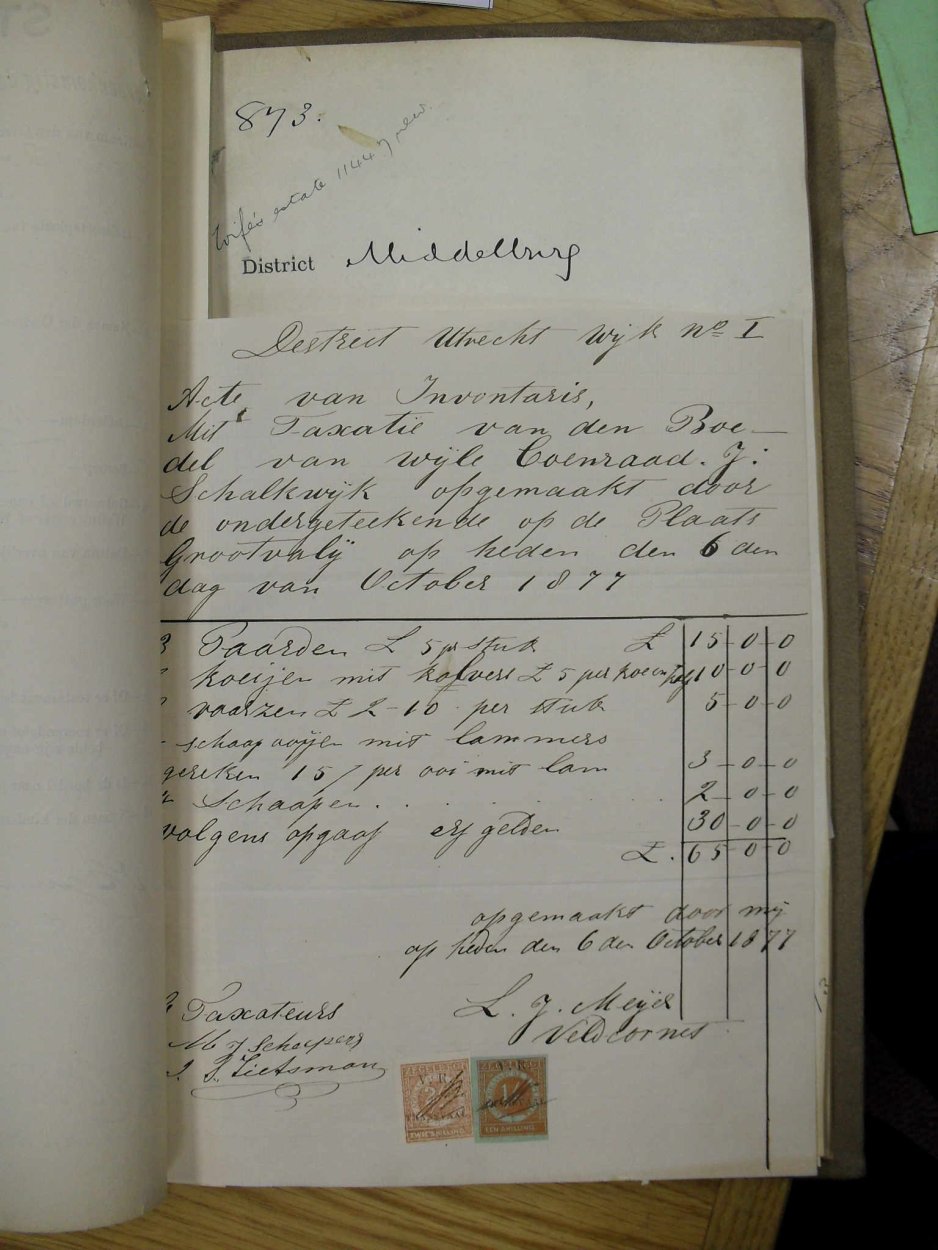 873.
Wife's estate 11447 new.
District Middelburg
Destrect Utrecht Wijk No I
Acte van Inventaris,
Mit Taxatie van den Boe-
del van wijle Coenraad. J:
Schalkwijk opgemaakt door
de ondergeteekende op de Plaats
Grootvalij op heden den 6 den
dag van October 1877
3 Paarden £ 5 pr Stuk £ 15-0-0
koeijen mit kalvers £ 5 per koe en kalf 10-0-0
vaarzen £ 2-10 per stuk 5-0-0
schaap ooijen mit lammers
gereken 15/ per ooi mit lam 3-0-0
Schaapen . . . . . . . 2-0-0
volgens opgaaf erf gelden 30-0-0
£. 65-0-0
opgemaakt door mij
op heden den 6 den October 1877
Taxateurs
L. J. Meijer
Veldcornet
M J Scheepers
P. Zietsman
ZEGELREGT
V.R.
TRANSVAAL
TWEE SHILLING
V.R.
TRANSVAAL
EEN SHILLING